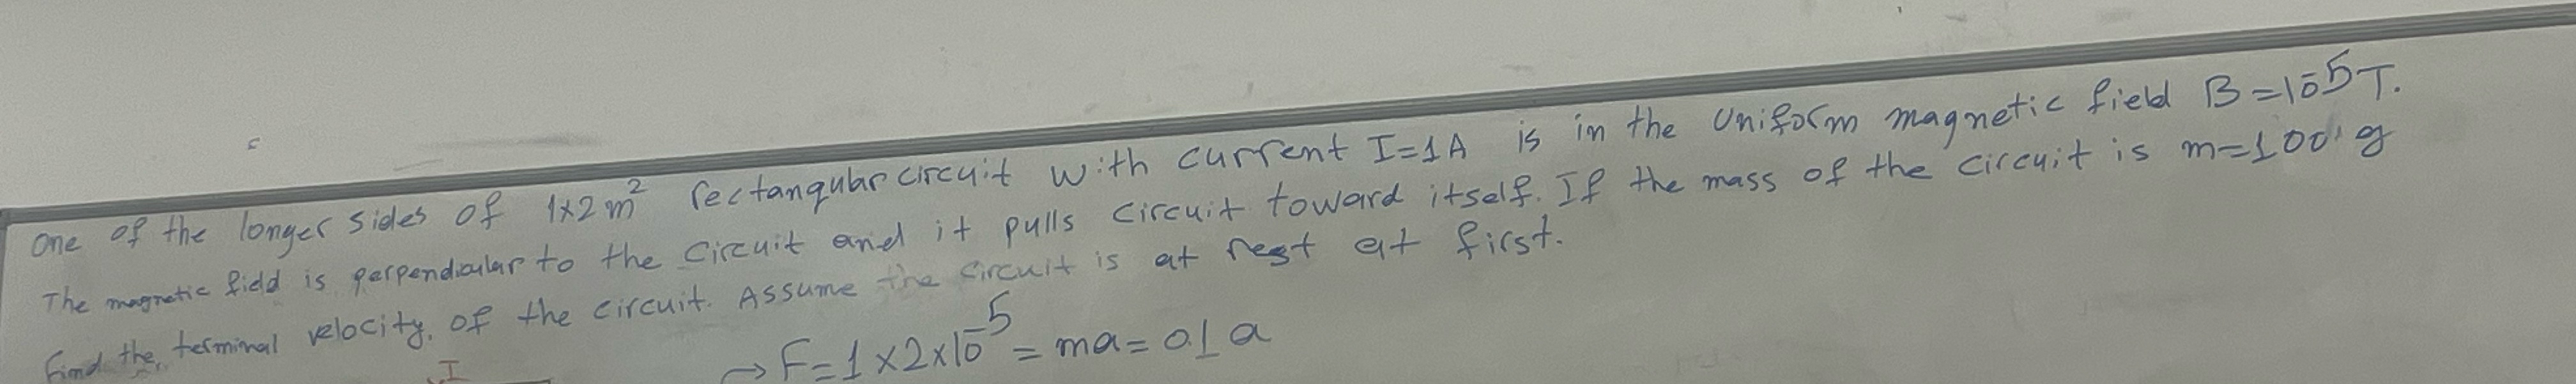 One of the longer sides of 1×2 m² rectangular circuit with current I=1A is in the uniform magnetic field B=10⁻⁵T.
The magnetic field is perpendicular to the circuit and it pulls circuit toward itself. If the mass of the circuit is m=100 g
find the terminal velocity, of the circuit. Assume the circuit is at rest at first.
→ F=1×2×10⁻⁵ = ma= 0.1 a
I